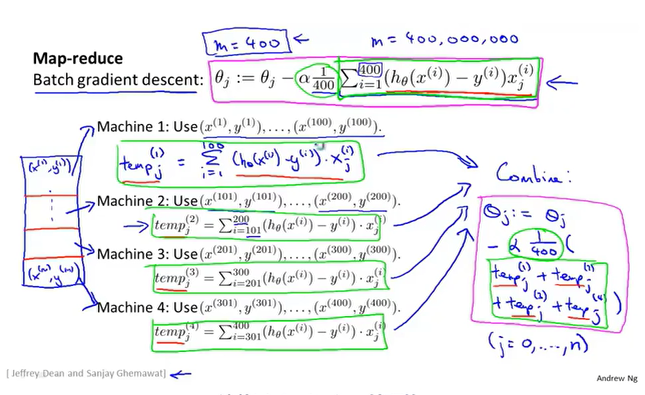 m = 400 ← m = 400,000,000
Map-reduce
Batch gradient descent: θ_j := θ_j − α 1/400 ∑_{i=1}^{400} (h_θ(x^{(i)}) − y^{(i)}) x_j^{(i)} ←
Machine 1: Use (x^{(1)}, y^{(1)}), . . . , (x^{(100)}, y^{(100)}).
temp_j^{(1)} = ∑_{i=1}^{100} (h_θ(x^{(i)}) - y^{(i)}) · x_j^{(i)}
(x^{(1)}, y^{(1)})
Machine 2: Use (x^{(101)}, y^{(101)}), . . . , (x^{(200)}, y^{(200)}).
→ temp_j^{(2)} = ∑_{i=101}^{200} (h_θ(x^{(i)}) − y^{(i)}) · x_j^{(i)}
Machine 3: Use (x^{(201)}, y^{(201)}), . . . , (x^{(300)}, y^{(300)}).
temp_j^{(3)} = ∑_{i=201}^{300} (h_θ(x^{(i)}) − y^{(i)}) · x_j^{(i)}
(x^{(m)}, y^{(m)})
Machine 4: Use (x^{(301)}, y^{(301)}), . . . , (x^{(400)}, y^{(400)}).
temp_j^{(4)} = ∑_{i=301}^{400} (h_θ(x^{(i)}) − y^{(i)}) · x_j^{(i)}
Combine:
θ_j := θ_j
− α 1/400 (
temp_j^{(1)} + temp_j
+ temp_j + temp_j^{(4)} )
(j = 0, ..., n)
[ Jeffrey Dean and Sanjay Ghemawat] ←
Andrew Ng